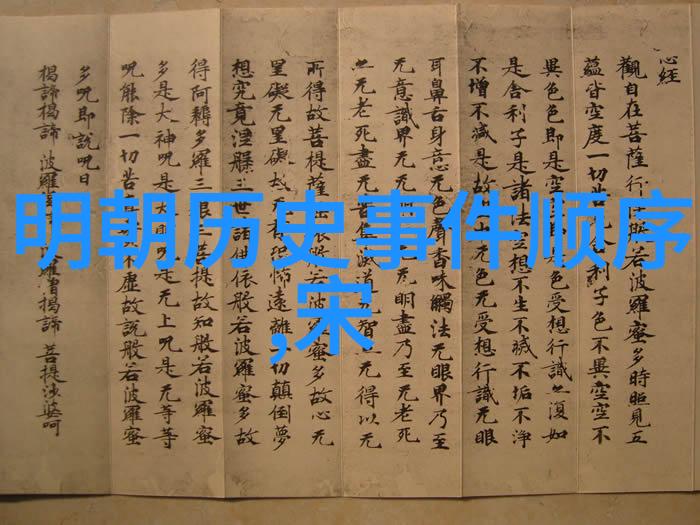 心经
觀自在菩薩行若波羅蜜多時照見五
蘊皆空度一切苦舍利子色不異空空不
異色色即是空是色受想行識亦復如
是舍利子是諸法空想不生不滅不垢不淨
不增不减是故无色无受想行識无眼
耳鼻舌身意无色聲香味觸法无眼界乃至
无意識界无无明盡乃至无老死
亦无老死盡无苦滅道无智亦无得以无
所得故菩提薩依般若波羅蜜多故心无
罣礙无罣礙故无恐怖遠離切顛倒夢
想究竟涅槃三世諸佛依般若波羅蜜多故
得阿耨多羅三藐三菩提故知般若波羅蜜
多是大神呪是大明呪是无上呪是无等等
呪能除一切苦不虛故說般若波羅蜜
多呪即說呪曰
揭諦揭諦 波羅 羅僧揭諦 菩提婆呵
明朝历史事件顺序
,宋